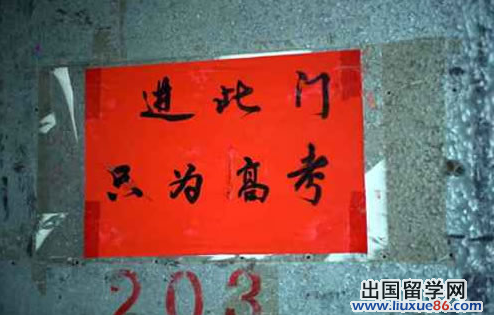 进此门
只为高考
203
出国留学网
www.liuxue86.com